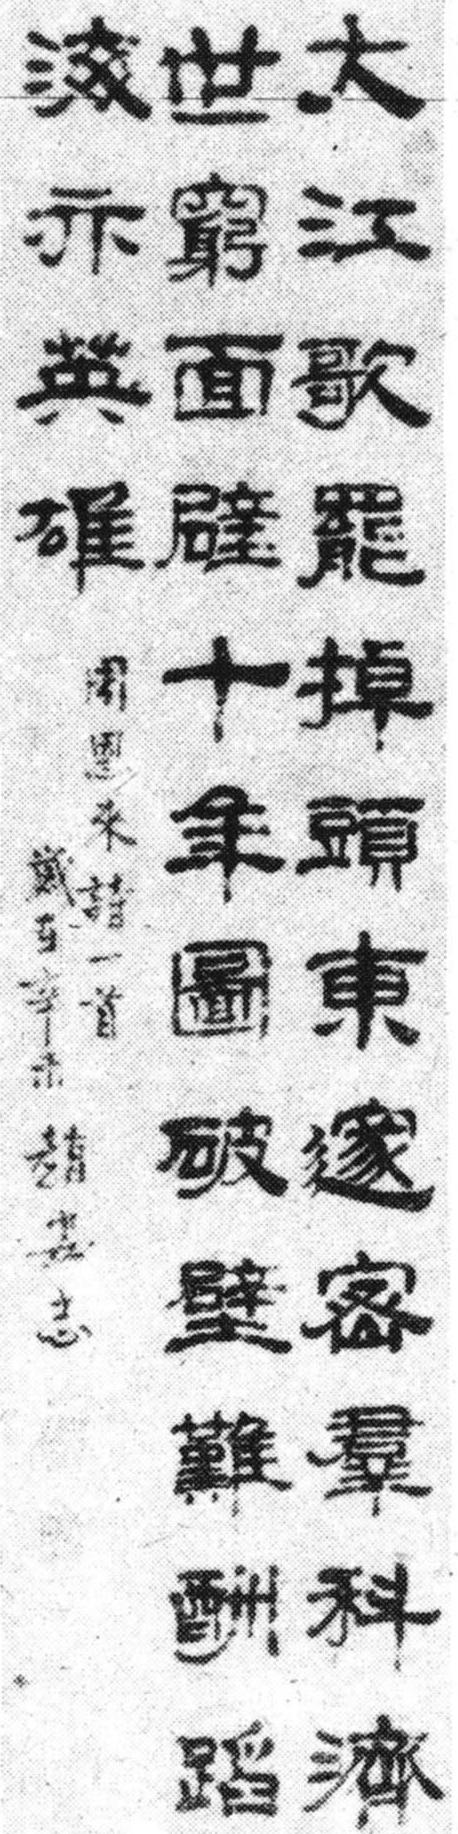 大江歌罷掉頭東邃密羣科濟
世窮面壁十年圖破壁難酬蹈
海亦英雄
周恩来詩一首
歲在辛未